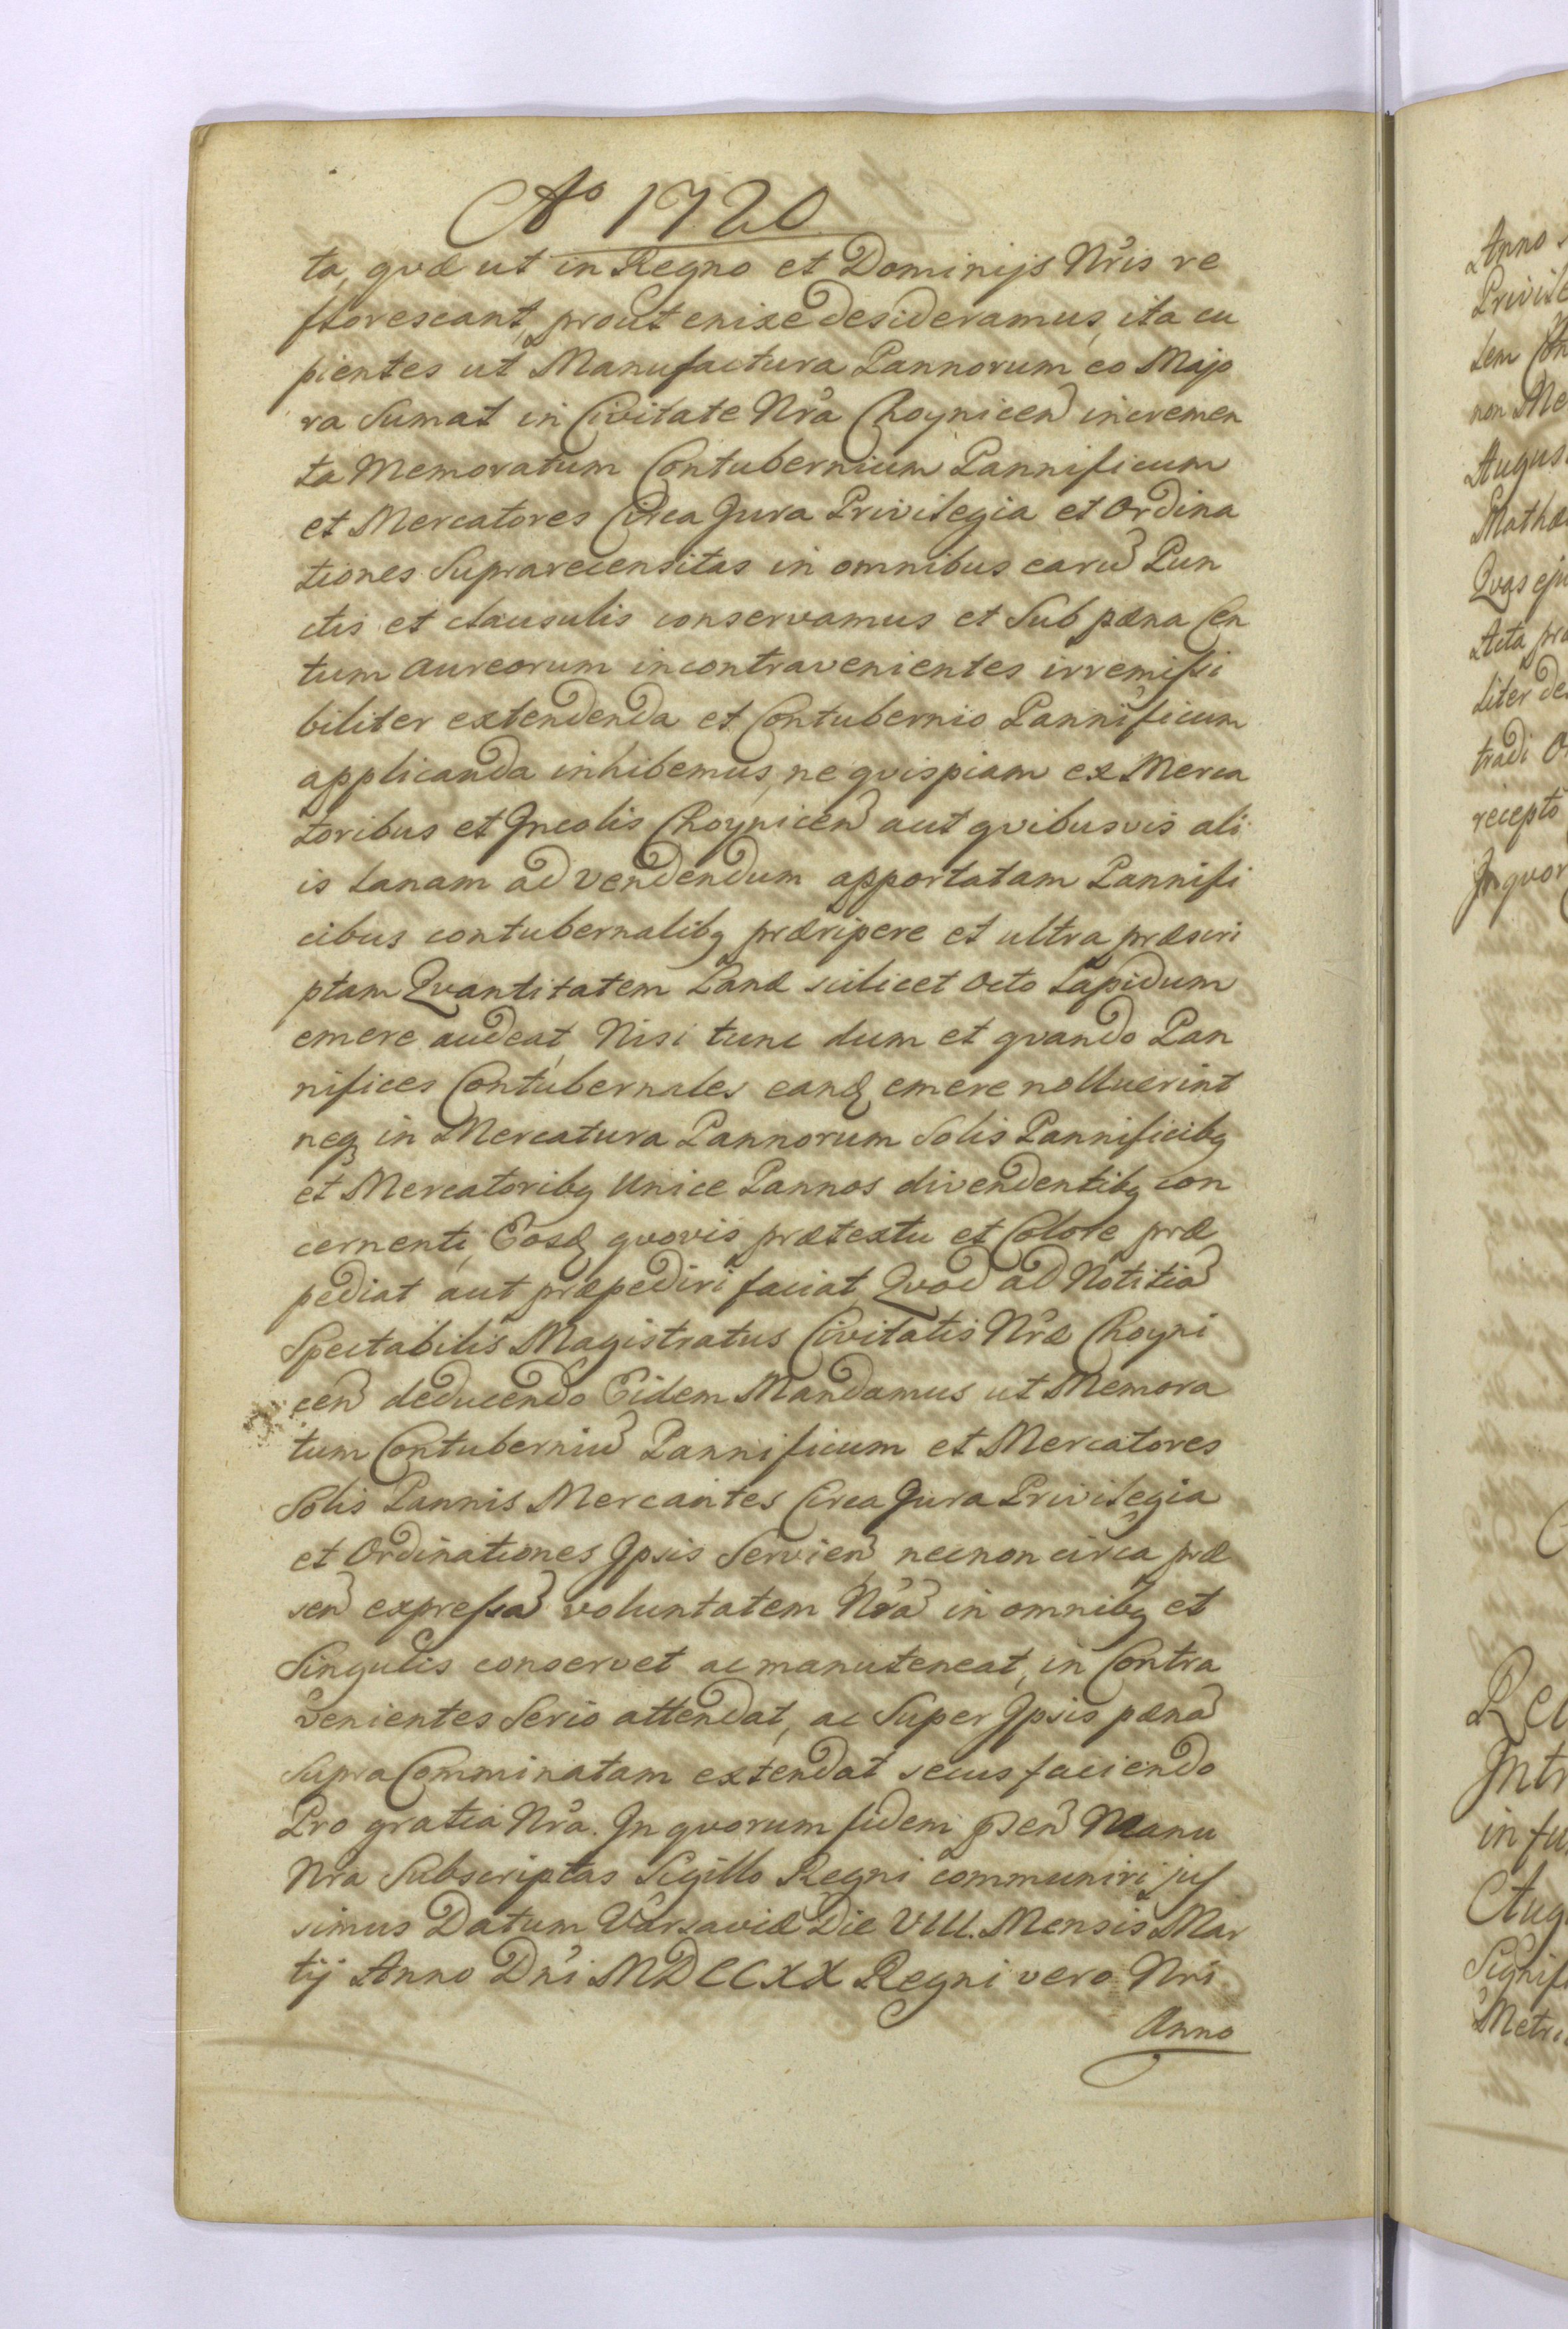 Aº 1720
ta, qvæ ut in Regno et Dominijs Nris re
florescant, prout enixe desideramus, ita cu
pientes ut Manufactura Pannorum eo Majo
ra Sumat in Civitate Nra Choynicen incremen
ta Memoratum Contubernium Pannificum
et Mercatores Circa Jura Privilegia et Ordina
tiones Suprarecensitas in omnibus earu Pun
ctis et clausulis conservamus et Sub pæna Cen
tum aureorum in contravenientes irremissi
biliter extendenda et Contubernio Pannificum
applicanda inhibemus, ne qvispiam ex Merca
toribus et Incolis Choynicen aut qvibusvis ali
is Lanam ad vendendum apportatam Pannifi
cibus contubernalibq præripere et ultra præscri
ptam Qvantitatem Lanæ scilicet Octo Lapidum
emere audeat, Nisi tunc dum et qvando Pan
nifices Contubernales eandq emere nolluerint
neq in Mercatura Pannorum Solis Pannificibq
et Mercatoribq Unice Pannos divendentibq con
cernenti, Eosdq qvovis prætextu et Colore præ
pediat aut præpediri faciat, Qvod ad Notitia
Spectabilis Magistratus Civitatis Nræ Choyni
cen deducendo Eidem Mandamus ut Memora
tum Contuberniu Pannificum et Mercatores
Solis Pannis Mercantes Circa Jura Privilegia
et Ordinationes Ipsis Servien, necnon circa præ
sen expressa voluntatem Nra in omnibq et
Singulis conservet ac manuteneat, in Contra
venientes Serio attendat, ac Super Ipsis pæna
supra Comminatam extendat secus faciendo
Pro gratia Nra. In qvorum fidem psen Manu
Nra Subscriptas Sigillo Regni communiri jus
simus Datum Varsaviæ Die VIII. Mensis Mar
tij Anno Dni MDCCXX Regni vero Nri
Anno
Anno
Privile
non Me
Augus
Acta præ
liter de
tradi
recepto
In qvor
Intr
in fu
Aug
Signifi
Metri